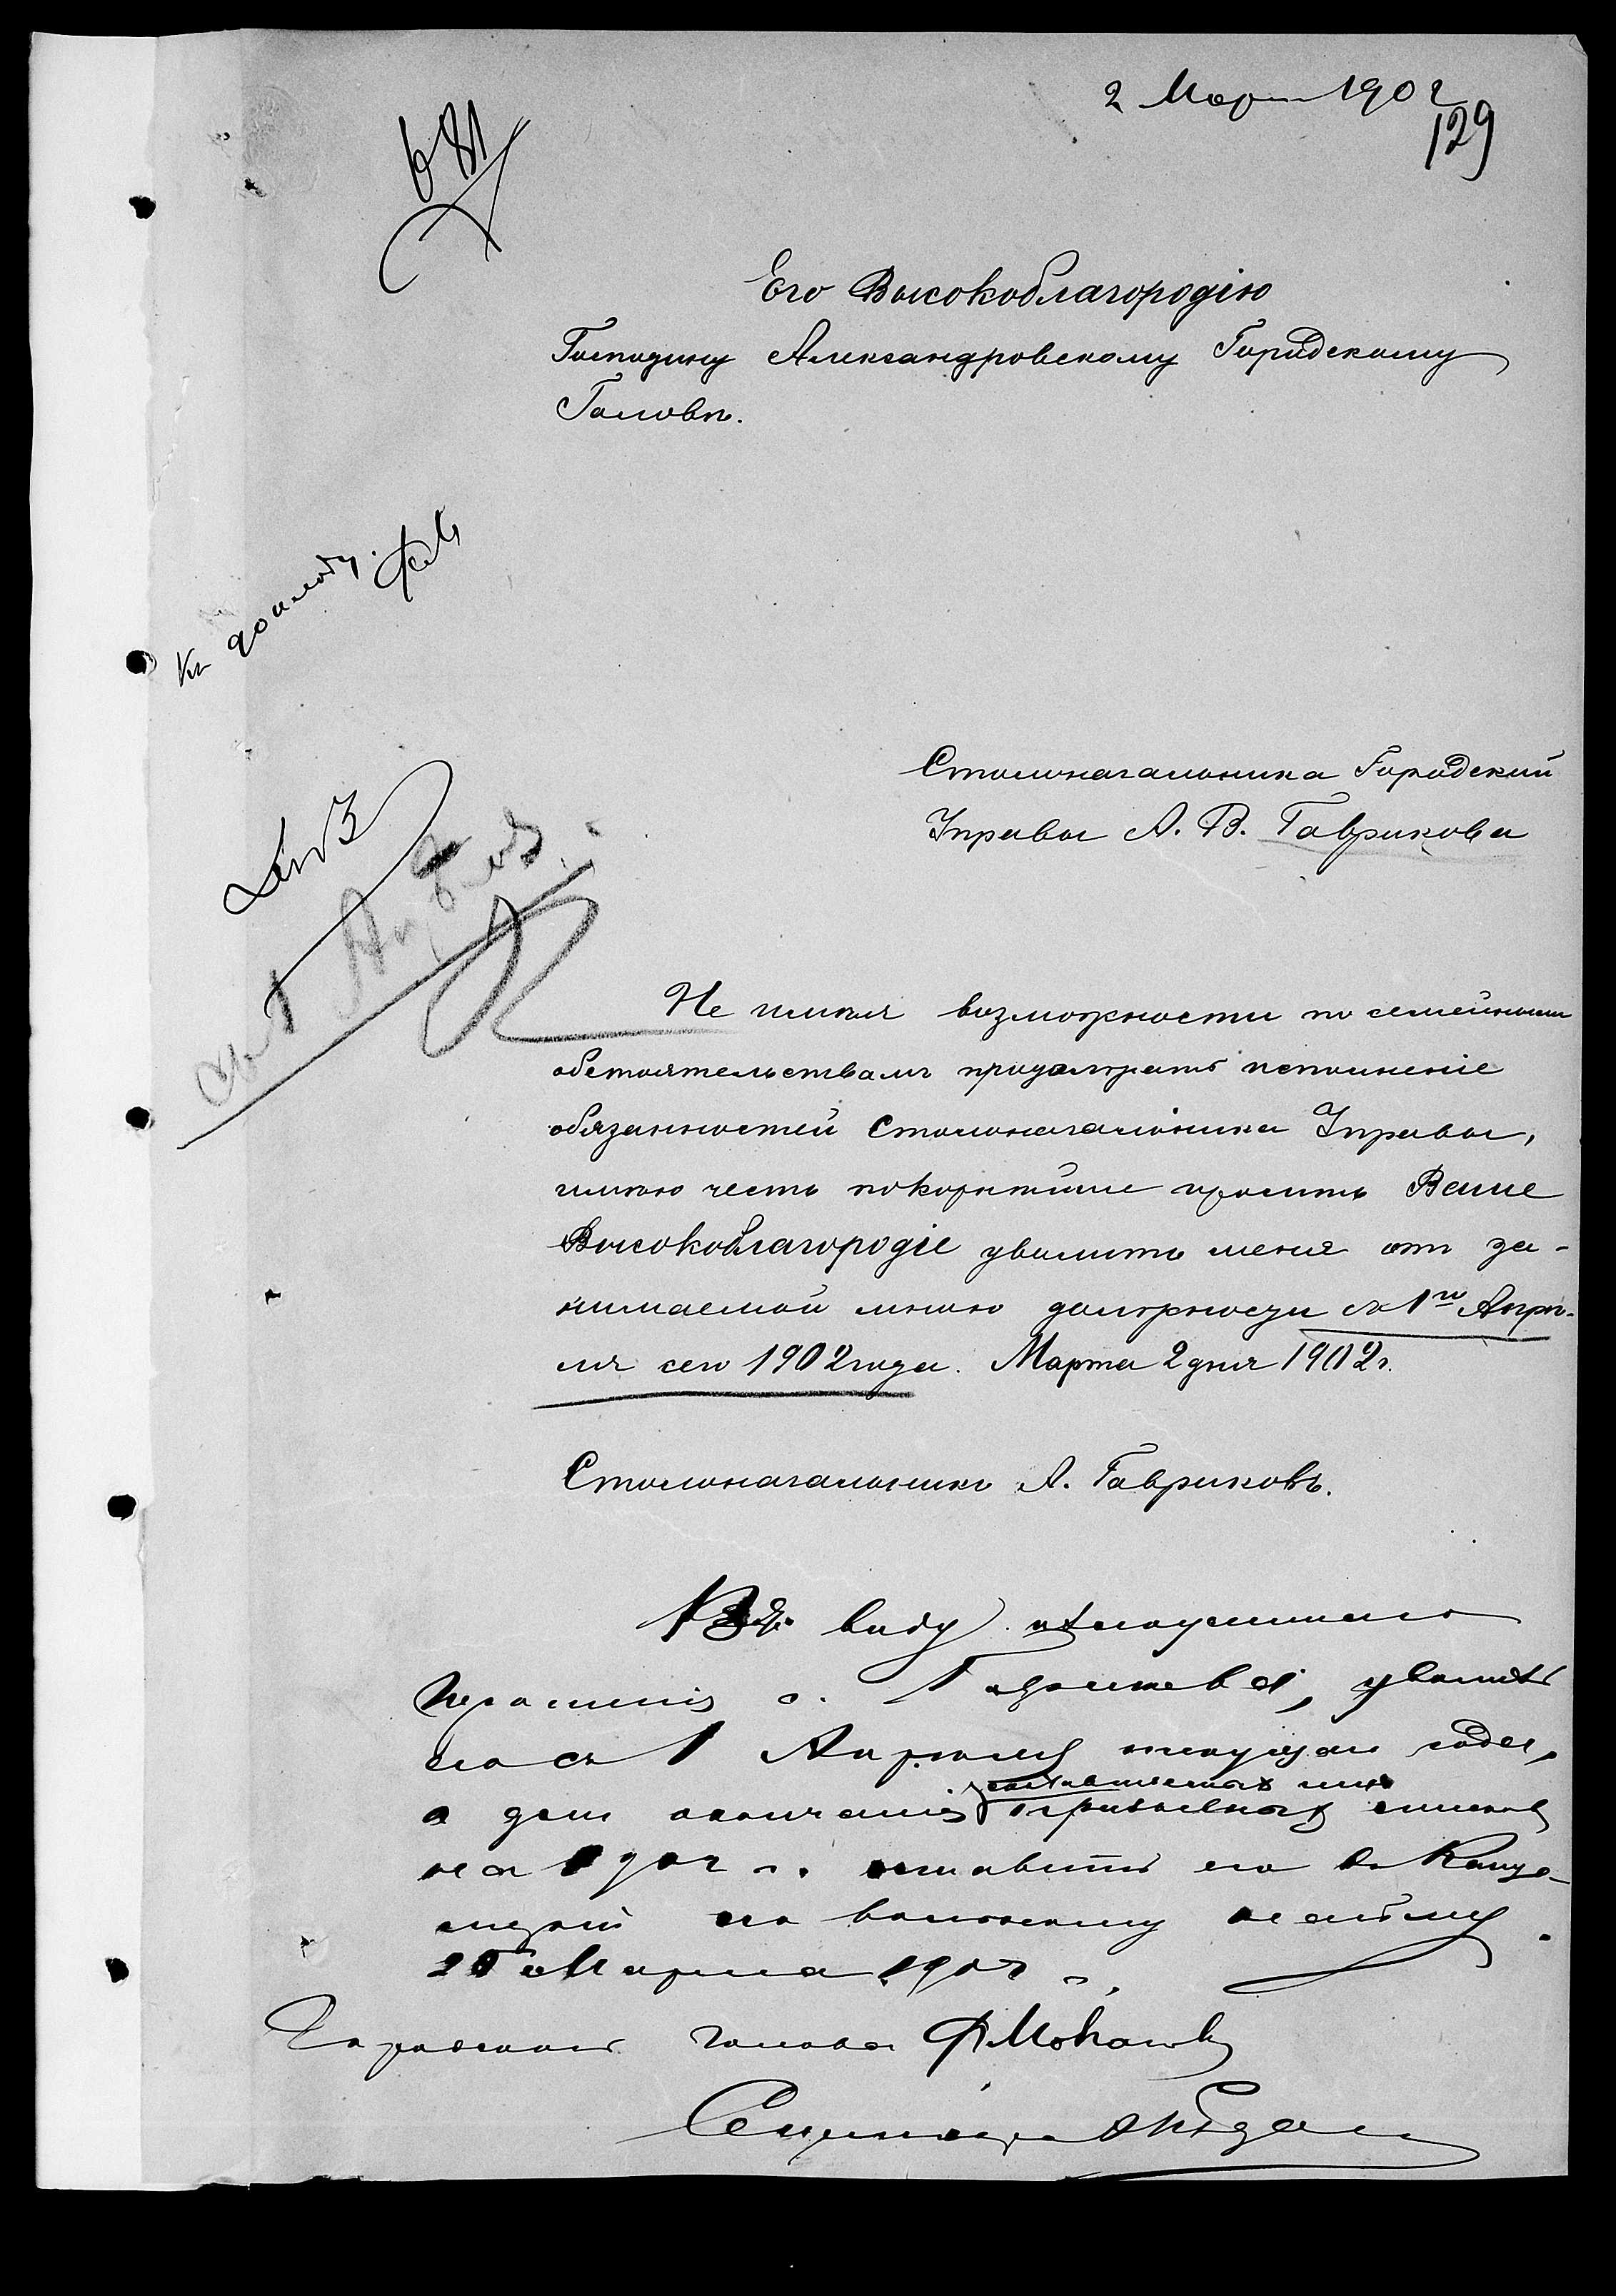 2 Марта 1902
129
681
Его Высокоблагородію
Господину Александровскому Городскому
Головѣ.
Къ докладу.
Столоначальника Городской
Управы А. В. Гаврикова
Не имѣя возможности по семейнымъ
обстоятельствамъ продолжать исполненіе
обязанностей Столоначальника Управы,
имѣю честь покорнѣйше просить Ваше
Высокоблагородіе уволить меня отъ за-
нимаемой мною должности съ 1го Апрѣ-
ля сего 1902 года. Марта 2 дня 1902 г.
Столоначальникъ А. Гавриковъ.
Въ виду
прошенія г. Гаврикова, уволить
его съ 1 Апрѣля текущаго года,
составленныхъ имъ
а для окончанія призывныхъ списковъ
на 1902 г. оставить его въ Канце-
ляріи по вольному найму.
Марта 1902 г.
Городской Голова
Секретарь